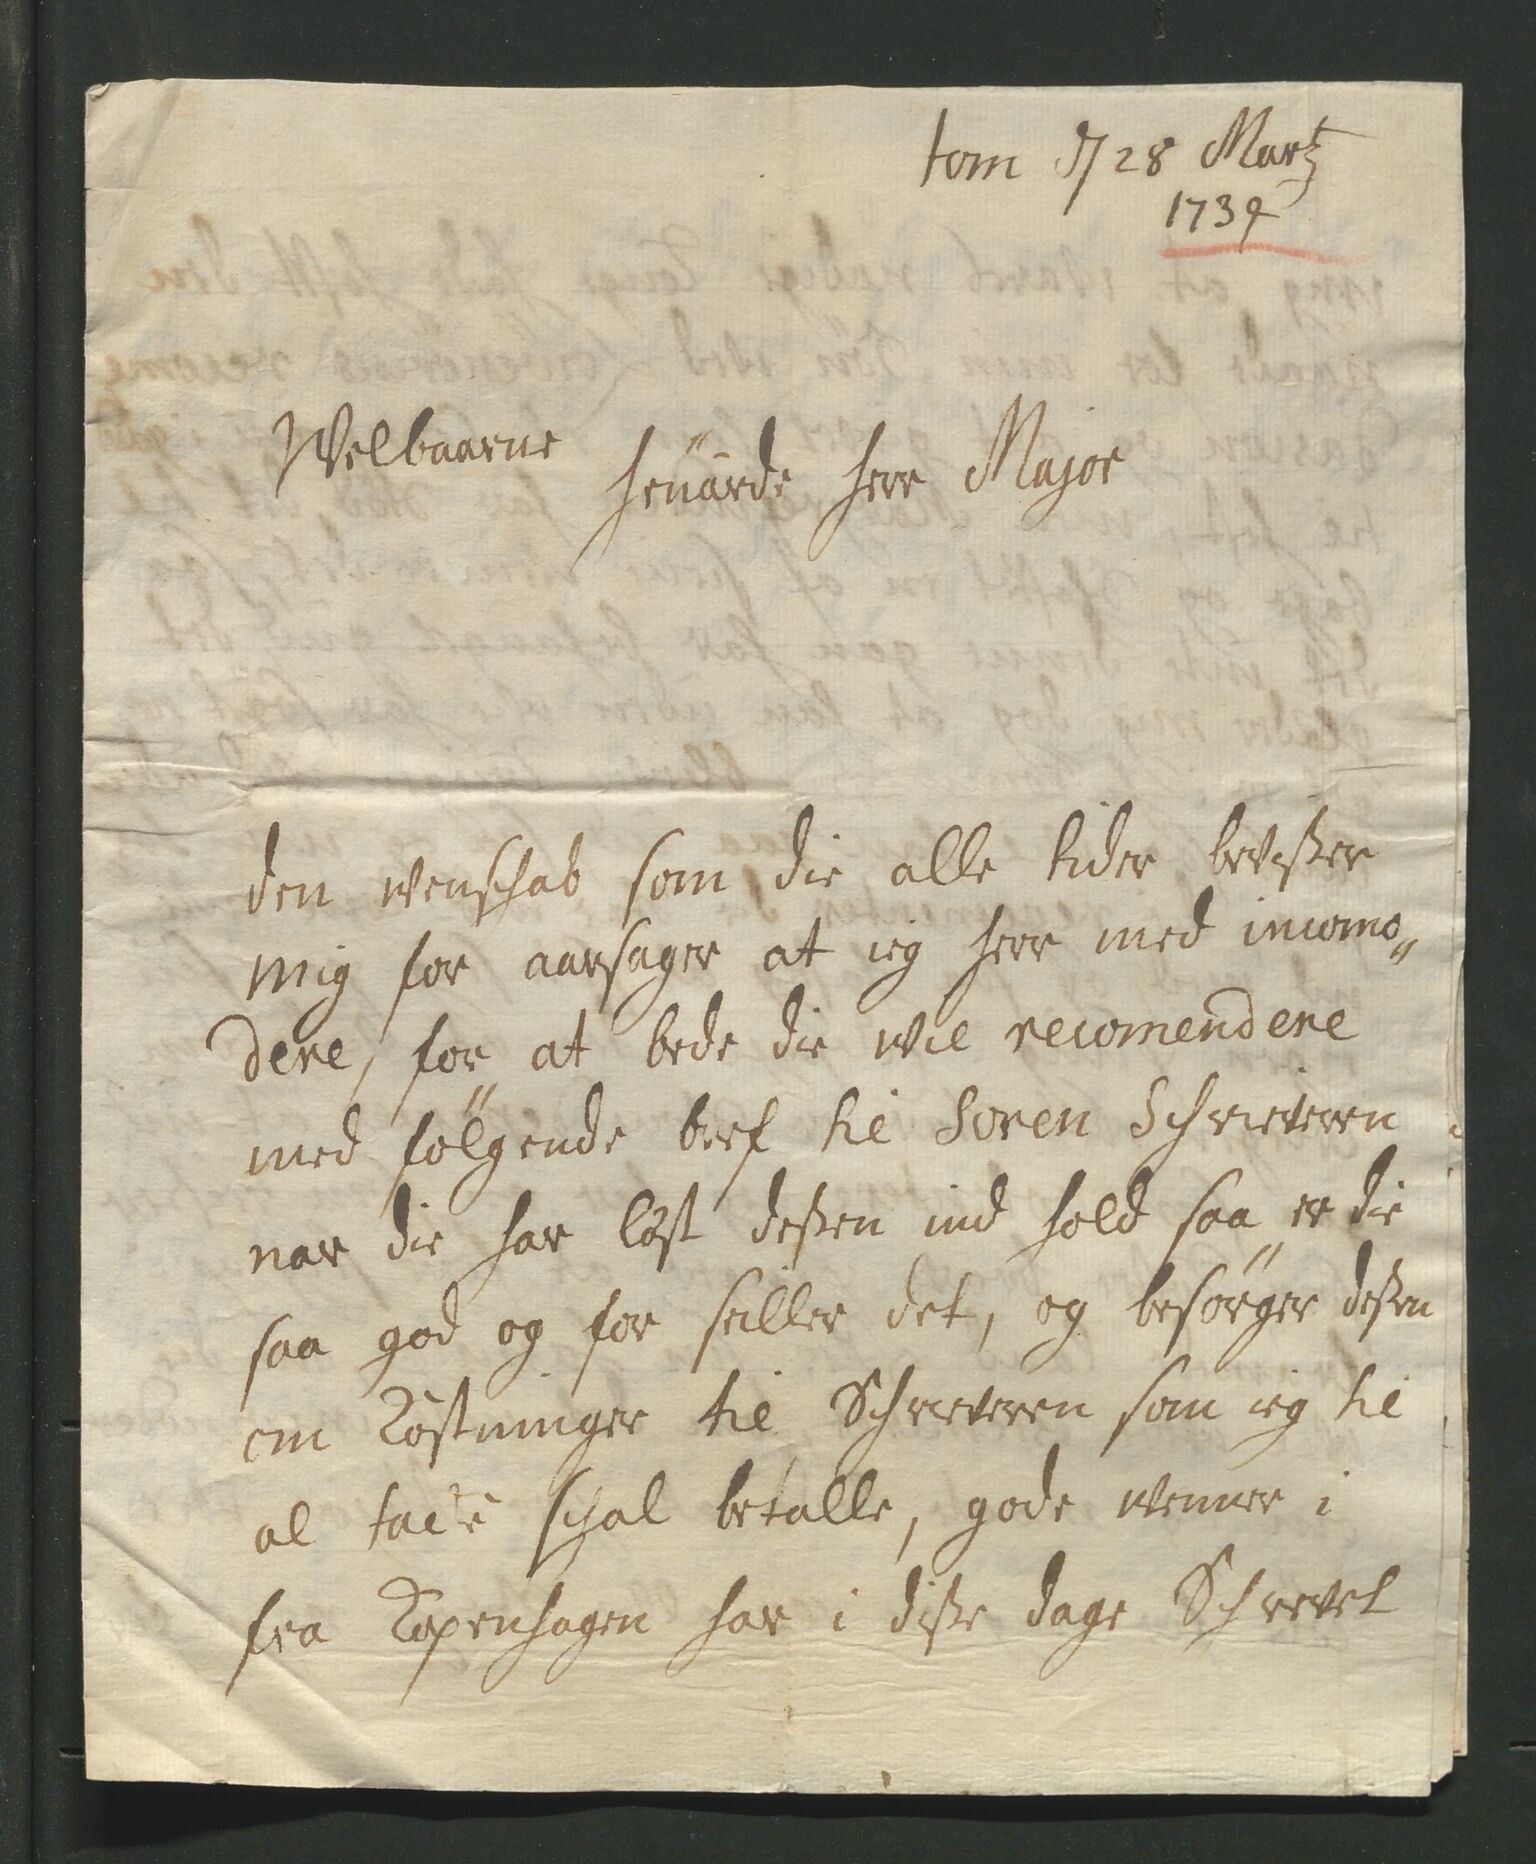 tom d 28 Martz
1739
Welbaarne
heüarde herr Major
den wenschab som die alle tider bevisser
mig for aarsager at ieg herr med incomo„
dere, for at bede die wil recomendere
med fölgende bref til Soren Schriveren
nar die har läst dessen ind hold saa er die
saa god og for seiller det, og besörger dessen
om Kostninger til Schriveren som ieg til
al schal betalle, gode wenner i
fra Kopenhagen har i disse dage Schrevet